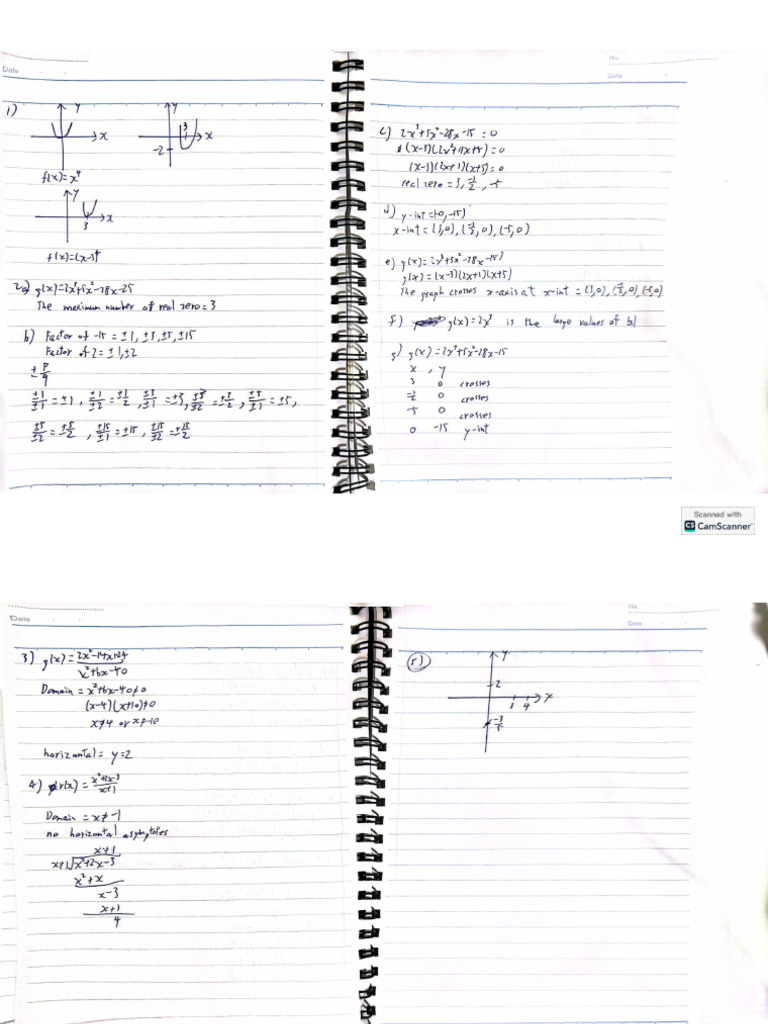 Date
1)
y
x
y
3
x
-2
f(x)=x⁴
y
x
3
f(x)=(x-3)⁴
2a) g(x)=2x³+5x²-28x-25
The maximum number of real zero=3
b) Factor of -15 = ±1, ±3, ±5, ±15
Factor of 2 = ±1, ±2
± p/q
±1/±1 = ±1, ±1/±2 = ±1/2, ±3/±1 = ±3, ±3/±2 = ±3/2, ±5/±1 = ±5,
±5/±2 = ±5/2, ±15/±1 = ±15, ±15/±2 = ±15/2
No.
Date
c) 2x³+5x²-28x-15 = 0
(x-3)(2x²+11x+5)=0
(x-3)(2x+1)(x+5)=0
real zero = 3, -1/2, -5
d) y-int=(0,-15)
x-int=(3,0), (-1/2,0), (-5,0)
e) g(x)=2x³+5x²-28x-15
g(x)=(x-3)(2x+1)(x+5)
The graph crosses x-axis at x-int = (3,0), (-1/2,0), (-5,0)
f) g(x)=2x³ is the large values of |x|
g) g(x)=2x³+5x²-28x-15
x , y
3 0 crosses
-1/2 0 crosses
-5 0 crosses
0 -15 y-int
Scanned with
CS CamScanner
Date
3) g(x)=2x²-14x+24/x²+6x-40
Domain = x²+6x-40≠0
(x-4)(x+10)≠0
x≠4 or x≠-10
horizontal = y=2
4) r(x)=x²+2x-3/x+1
Domain = x≠-1
no horizontal asymptotes
x+1
x+1√x²+2x-3
x²+x
x-3
x+1
4
No.
Date
5)
y
2
x
3 4
-3/5